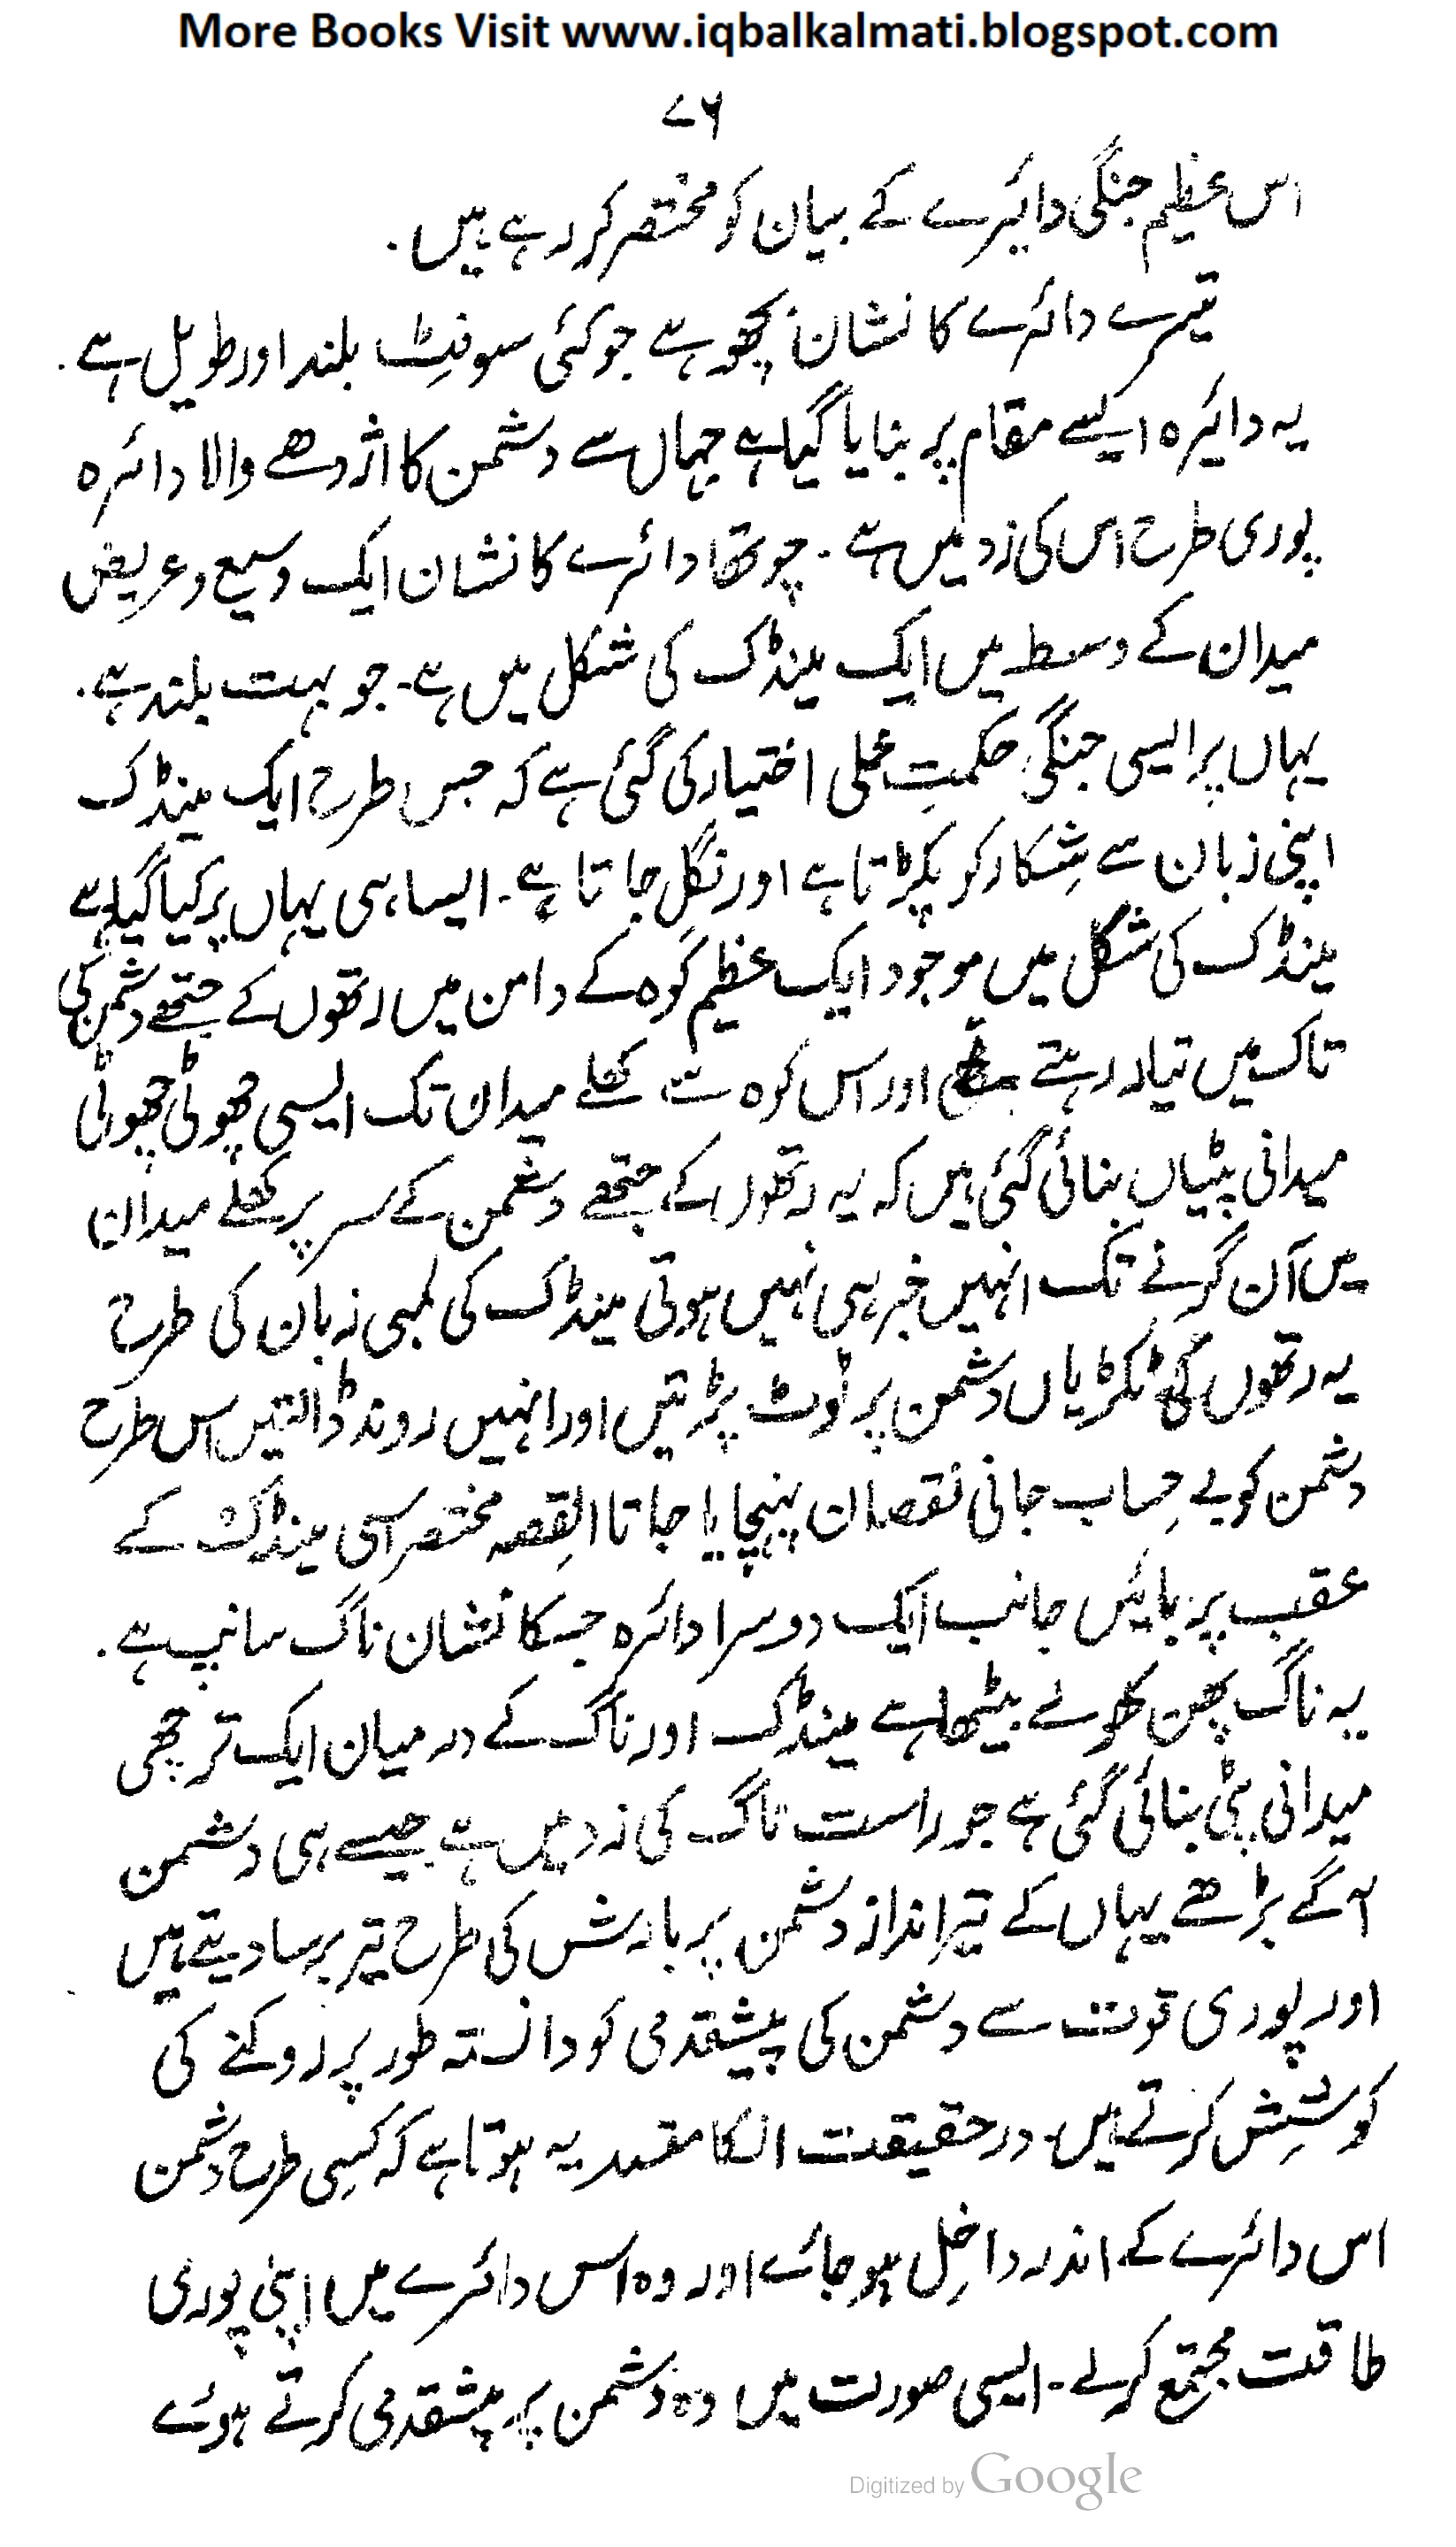 More Books Visit www.iqbalkalmati.blogspot.com
۷۶
اس عظیم جنگی دائرے کے بیان کو مختصر کر رہے ہیں۔
تیسرے دائرے کا نشان بچھو ہے جو کئی سو فٹ بلند اور طویل ہے۔
یہ دائرہ ایسے مقام پر بنایا گیا ہے جہاں سے دشمن کا اژدھے والا دائرہ
پوری طرح اس کی زد میں ہے۔ چوتھا دائرے کا نشان ایک وسیع و عریض
میدان کے وسط میں ایک مینڈک کی شکل میں ہے۔ جو بہت بلند ہے۔
یہاں پر ایسی جنگی حکمتِ عملی اختیار کی گئی ہے کہ جس طرح ایک مینڈک
اپنی زبان سے شِکار کر پکڑتا ہے اور نگل جاتا ہے۔ ایسا ہی یہاں پر کیا گیا ہے
مینڈک کی شکل میں موجود ایک عظیم کوہ کے دامن میں رتھوں کے جتھے دشمن کی
تاک میں تیار رہتے اور اس کوہ سے کھلے میدان تک ایسی چھوٹی چھوٹی
میدانی پٹیاں بنائی گئی ہیں کہ یہ رتھوں کے جتھے دشمن کے سر پر کھلے میدان
میں آن گرنے تک انہیں خبر ہی نہیں ہوتی مینڈک کی لمبی زبان کی طرح
یہ رتھوں کی ٹکڑیاں دشمن پر ٹوٹ پڑتیں اور انہیں روند ڈالتیں اس طرح
دشمن کو بے حِساب جانی نقصان پہنچایا جاتا القِصہ مختصر اسی مینڈک کے
عقب پر بائیں جانب ایک دوسرا دائرہ جسکا نشان ناگ سانپ ہے۔
یہ ناگ پھن کھولے بیٹھا ہے مینڈک اور ناگ کے درمیان ایک ترچھی
میدانی پٹی بنائی گئی ہے جو راست ناگ کی زد میں ہے جیسے ہی دشمن
آگے بڑھے یہاں کے تیر انداز دشمن پر بارش کی طرح تیر برسا دیتے ہیں
اور پوری قوت سے دشمن کی پیشقدمی کو دانستہ طور پر روکنے کی
کوشِش کرتے ہیں۔ درحقیقت انکا مقصد یہ ہوتا ہے کہ کسِی طرح دشمن
اس دائرے کے اندر داخِل ہو جائے اور وہ اس دائرے میں اپنی پوری
طاقت مجتمع کر لے۔ ایسی صورت میں وہ دشمن پر پیشقدمی کرتے ہوئے
Digitized by Google